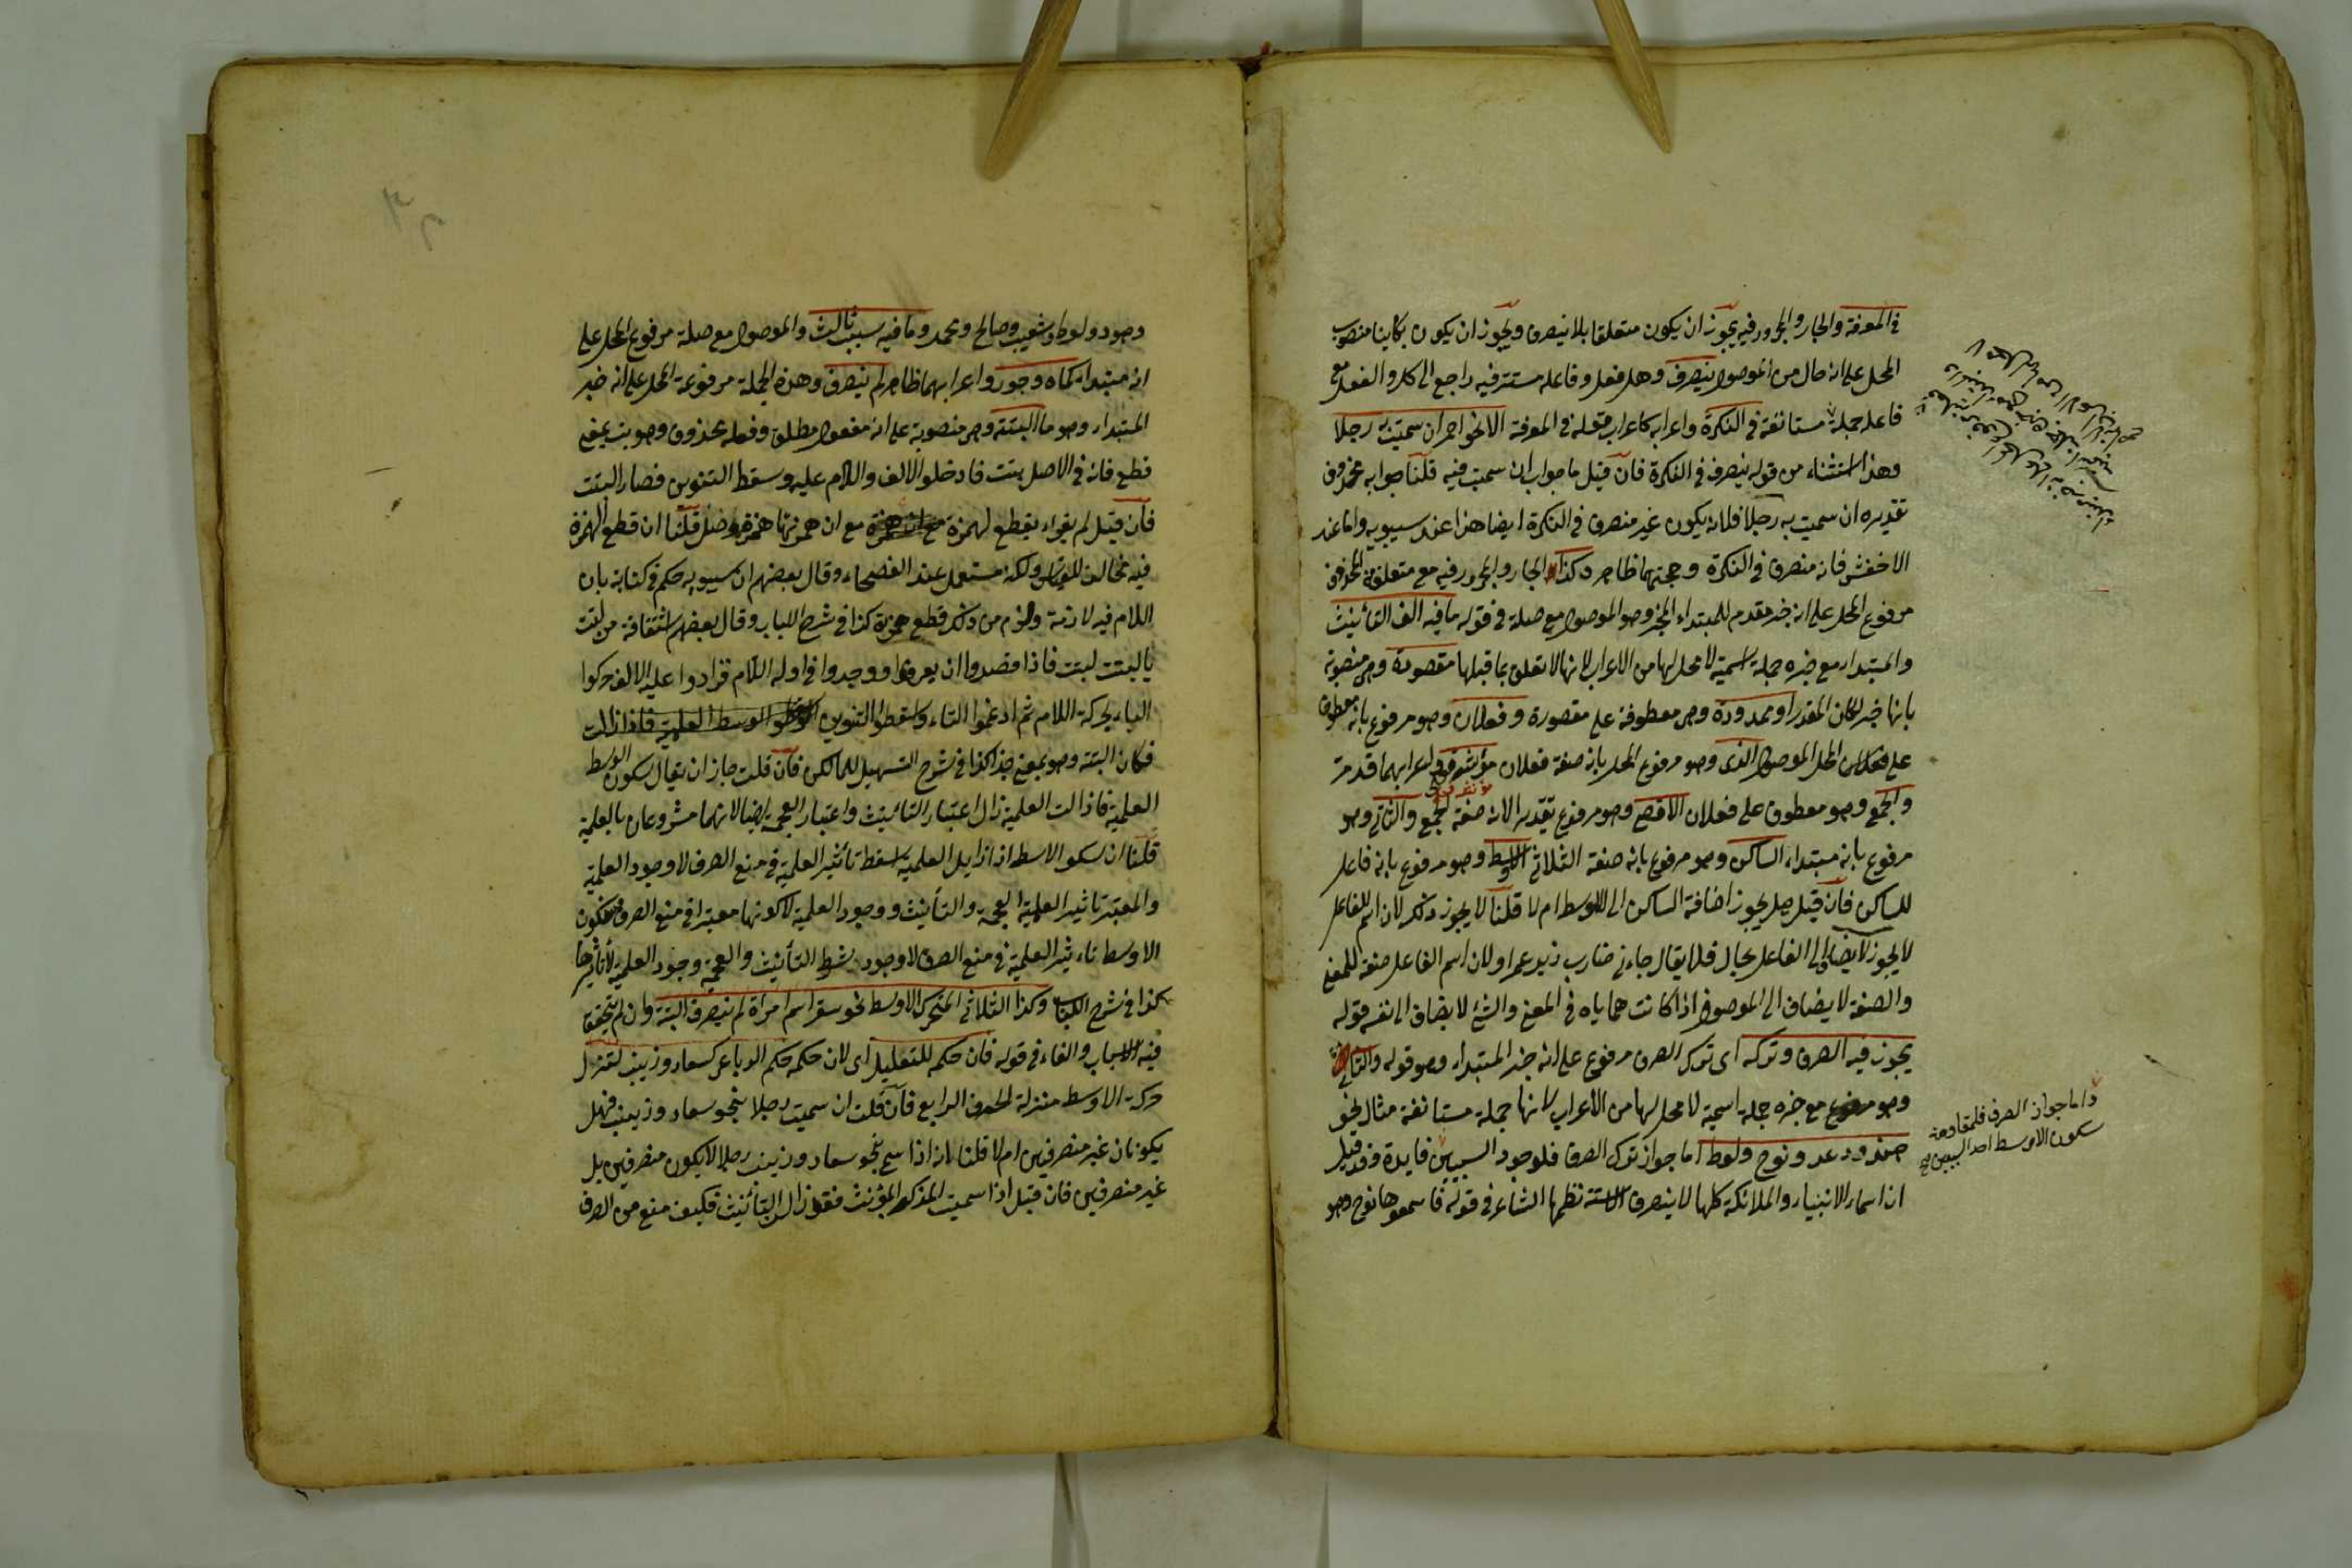 في المعرفة والجار والمجرور فيه يجوز ان يكون متعلقا بلا ينصرف ويجوز ان يكون بكاينا منصوب
المحل على انه حال من الموصول ينصرف وهل فعل وفاعله مستتر فيه راجع الى كل والفعل مع
فاعله جملة مستانفة في النكرة واعرابه كاعراب قوله في المعرفة الا نحو احمر ان سميت به رجلا
وهذا استثناء من قوله ينصرف في النكرة فان قيل ما جواب ان سميت فيه قلنا جوابه محذوف
تقديره ان سميت به رجلا فلانه يكون غير منصرف في النكرة ايضا هذا عند سيبويه واما عند
الاخفش فانه منصرف في النكرة وحجتهما ظاهر وكذا الجار والمجرور فيه مع متعلقه المحذوف
مرفوع المحل على انه خبر مقدم للمبتداء المؤخر وهو الموصول مع صلة في قوله ما فيه الف التانيث
والمبتداء مع خبره جملة اسمية لا محل لها من الاعراب لانها لا تعلق بما قبلها مقصورة وهي منصوبة
بانها خبر لكان المقدر او ممدودة وهي معطوفة على مقصورة وفعلان وهو مرفوع بانه معطوف
على المحل الموصول الذي وهو مرفوع المحل بانه صفة فعلان مؤنثه فعلى واعرابهما قد مر
والجمع وهو معطوف على فعلان الاقصى وهو مرفوع تقديرا لانه صفة لجمع والثاني وهو
مرفوع بانه مبتداء الساكن وهو مرفوع بانه صفة الثلاثي الاوسط وهو مرفوع بانه فاعل
للساكن فان قيل هل يجوز اضافة الساكن الى الاوسط ام لا قلنا لا يجوز ذلك لان اسم الفاعل
لا يجوز لا يضاف الى الفاعل بحال فلا يقال جاءني ضارب زيد عمرا ولان اسم الفاعل صفة للمعنى
والصفة لا يضاف الى الموصوف اذا كانت هما ياه في المعنى والشئ لا يضاف الى نفسه قوله
يجوز فيه الصرف وتركه اى ترك الصرف مرفوع على انه خبر المبتداء وهو قوله والثاني
وهو مرفوع مع خبره جملة اسمية لا محل لها من الاعراب لانها جملة مستانفة مثال نحو
هند ودعد ونوح ولوط اما جواز ترك الصرف فلوجود السببين فايدة وقد قيل
ان اسماء الانبياء والملائكة كلها لا ينصرف الا ستة نظمها الشاعر في قوله فاسمعوها نوح وهو
واما جواز الصرف فلمقاومة
سكون الاوسط احد السببين صح
وهود ولوط وشعيب وصالح ومحمد وما فيه سبب ثالث والموصول مع صلة مرفوع المحل على
انه مبتداء كماه وجور واعرابهما ظاهر لم ينصرف وهذه الجملة مرفوعة المحل على انه خبر
المبتداء وهو ما البتة وهي منصوبة على انه مفعول مطلق وفعله محذوف وهو بت بمعنى
قطع فانه في الاصل بتت فادخلوا الالف واللام عليه وسقط التنوين فصار البتت
فان قيل لم يقراء بقطع الهمزة مع ان همزتها همزة وصل قلنا ان قطع الهمزة
فيه مخالف للقياس ولكنه مستعمل عند الفصحاء وقال بعضهم ان سيبويه حكم في كتابه بان
اللام فيه لازمة ولزم من ذلك قطع همزة كذا في شرح اللباب وقال بعضهم اشتقاقه من لبتت
يالبتت لبتت فاذا قصدوا ان يعرفوا ووجدوا في اوله اللام فزادوا عليه الالف حركوا
الباء بحركة اللام ثم ادغموا التاء واسقطوا التنوين
فكان البتة وهو بمعنى جذا كذا في شرح التسهيل للمالكى فان قلت جاز ان يقال سكون الوسط
العلمية فاذا زالت العلمية زال اعتبار التانيث واعتبار العجمة ايضا لانهما مشروطان بالعلمية
قلنا ان سكو الاوسط اذا ازايل العلمية اسقط تاثير العلمية في منع الصرف لا وجود العلمية
والمعتبر تاثير العلمية العجمة والتأنيث ووجود العلمية لا كونها معتبرا في منع الصرف فسكون
الاوسط تاثير العلمية في منع الصرف لا وجود شرط التأنيث والعجمة وجود العلمية لا تأثيرها
كذا في شرح اللباب وكذا الثلاثي المتحرك الاوسط نحو سقر اسم امراة لم ينصرف البتة وان لم يتحقق
فيه الاسباب والفاء في قوله فان حكمه للتعليل اى لان حكمه حكم الرباعي كسعاد وزينب لتنزل
حركة الاوسط منزلة الحرف الرابع فان قلت ان سميت رجلا بنحو سعاد وزينب فهل
يكونان غير منصرفين ام لا قلنا انه اذا سمي بنحو سعاد وزينب رجلا لا يكون منصرفين بل
غير منصرفين فان قيل اذا سميت المذكر بالمؤنث فقد زال التأنيث فكيف منع من الصرف